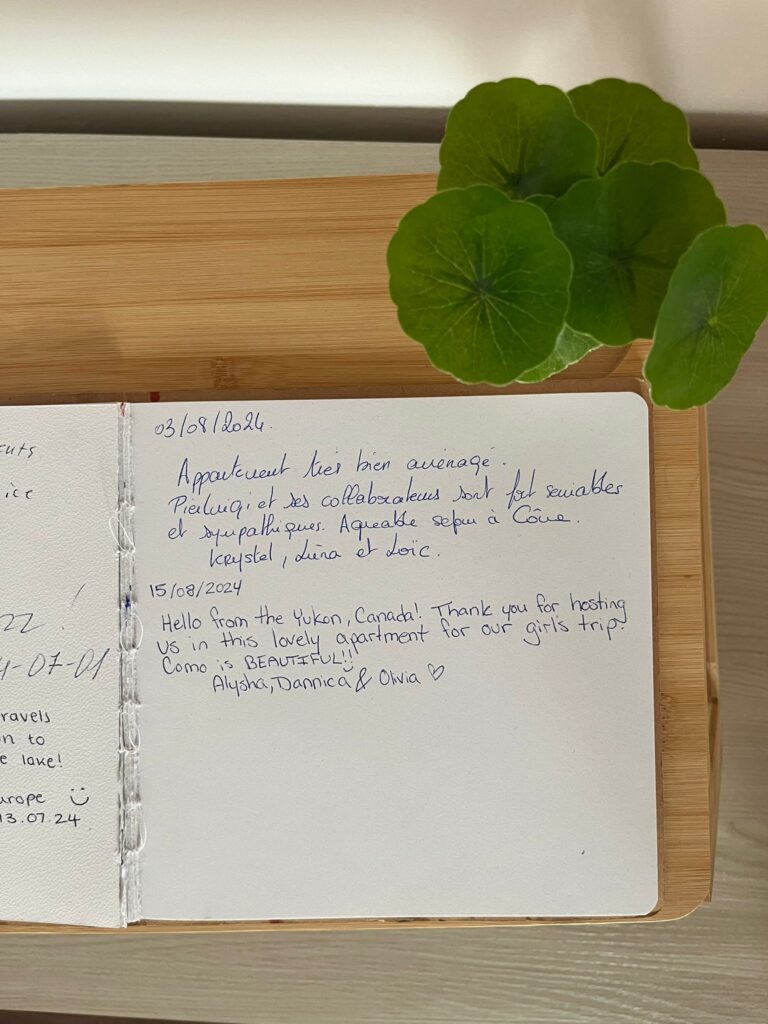 ice
22 !
4-07-01
ravels
n to
e lake!
urope
13.07.24
03/08/2024.
Appartement très bien aménagé.
Pierluigi et ses collaborateurs sont fort serviables
et sympathiques. Agréable séjour à Côme.
Krystel, Léna et Loïc.
15/08/2024
Hello from the Yukon, Canada! Thank you for hosting
us in this lovely apartment for our girl's trip.
Como is BEAUTIFUL!!
Alysha, Dannica & Olivia ♡